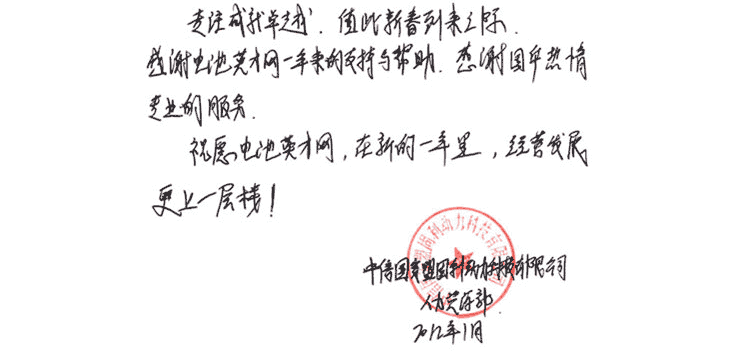 专注成就卓越. 值此新春到来之际.
感谢电池英才网一年来的支持与帮助. 感谢国华热情
专业的服务.
祝愿电池英才网, 在新的一年里, 经营发展
更上一层楼!
中信国安盟固利动力科技有限公司
人力资源部.
2012年1月